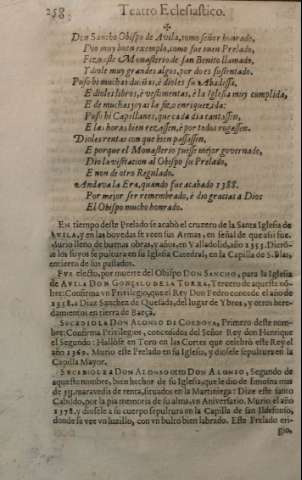 258 Teatro Eclesiastico.
✠
Don Sancho Obispo de Avila, como señor honrado,
Dio muy buen exemplo, como fue buen Prelado,
Fizo este Monasterio de san Benito llamado,
Y dole muy grandes algos, por do es sustentado.
Puso hi muchas dueñas, è dioles su Abadessa,
E dioles libros, è vestimentas, è la Iglesia muy cumplida,
E de muchas joyas la fizo enriquezida:
Puso hi Capellanes, que cada dia cantassen,
E las horas bien rezassen, è por todos rogassen.
Dioles rentas con que bien passassen,
E porque el Monasterio fuesse mejor governado,
Dio la visitacion al Obispo su Prelado,
E non de otro Regulado.
Andava la Era, quando fue acabado 1388.
Por mejor ser remembrado, è dio gracias a Dios
El Obispo mucho honrado.
EN tiempo deste Prelado se acabò el cruzero de la Santa Iglesia de
AVILA, y en las bovedas se veen sus Armas, en señal de que assi fue.
Murio lleno de buenas obras, y años, en Valladolid, año 1355. Dierō-
le los suyos sepultura en su Iglesia Catedral, en la Capilla de S. Blas,
entierro de los passados.
FVE electo, por muerte del Obispo DON SANCHO, para la Iglesia
de AVILA DON GONÇALO DE LA TORRE, Tercero de aqueste nō-
bre: Confirma vn Privilegio, que el Rey Don Pedro concede el año de
1358. a Diaz Sanchez de Quesada, del lugar de Ybros, y otros here-
damientos en tierra de Baeça.
SVCEDIOLE DON ALONSO DE CORDOVA, Primero deste nom-
bre: Confirma Privilegios, concedidos del Señor Rey don Henrique
el Segundo: Hallòse en Toro en las Cortes que celebrò este Rey el
año 1369. Murio este Prelado en su Iglesia, y diosele sepultura en la
Capilla Mayor.
SVCEDIOLE A DON ALONSO otro DON ALONSO, Segundo de
aqueste nombre, bien hechor de su Iglesia, que le dio de limosna mas
de 35j. maravedis de renta, situados en la Martiniega: Dize este santo
Cabildo, por la pia memoria de su alma, vn Aniversario. Murio el año
1378. y diosele a su cuerpo sepultura en la Capilla de san Ildefonso,
donde se vee vn luzillo, con vn bulto bien labrado. Este Prelado eri-
giò,